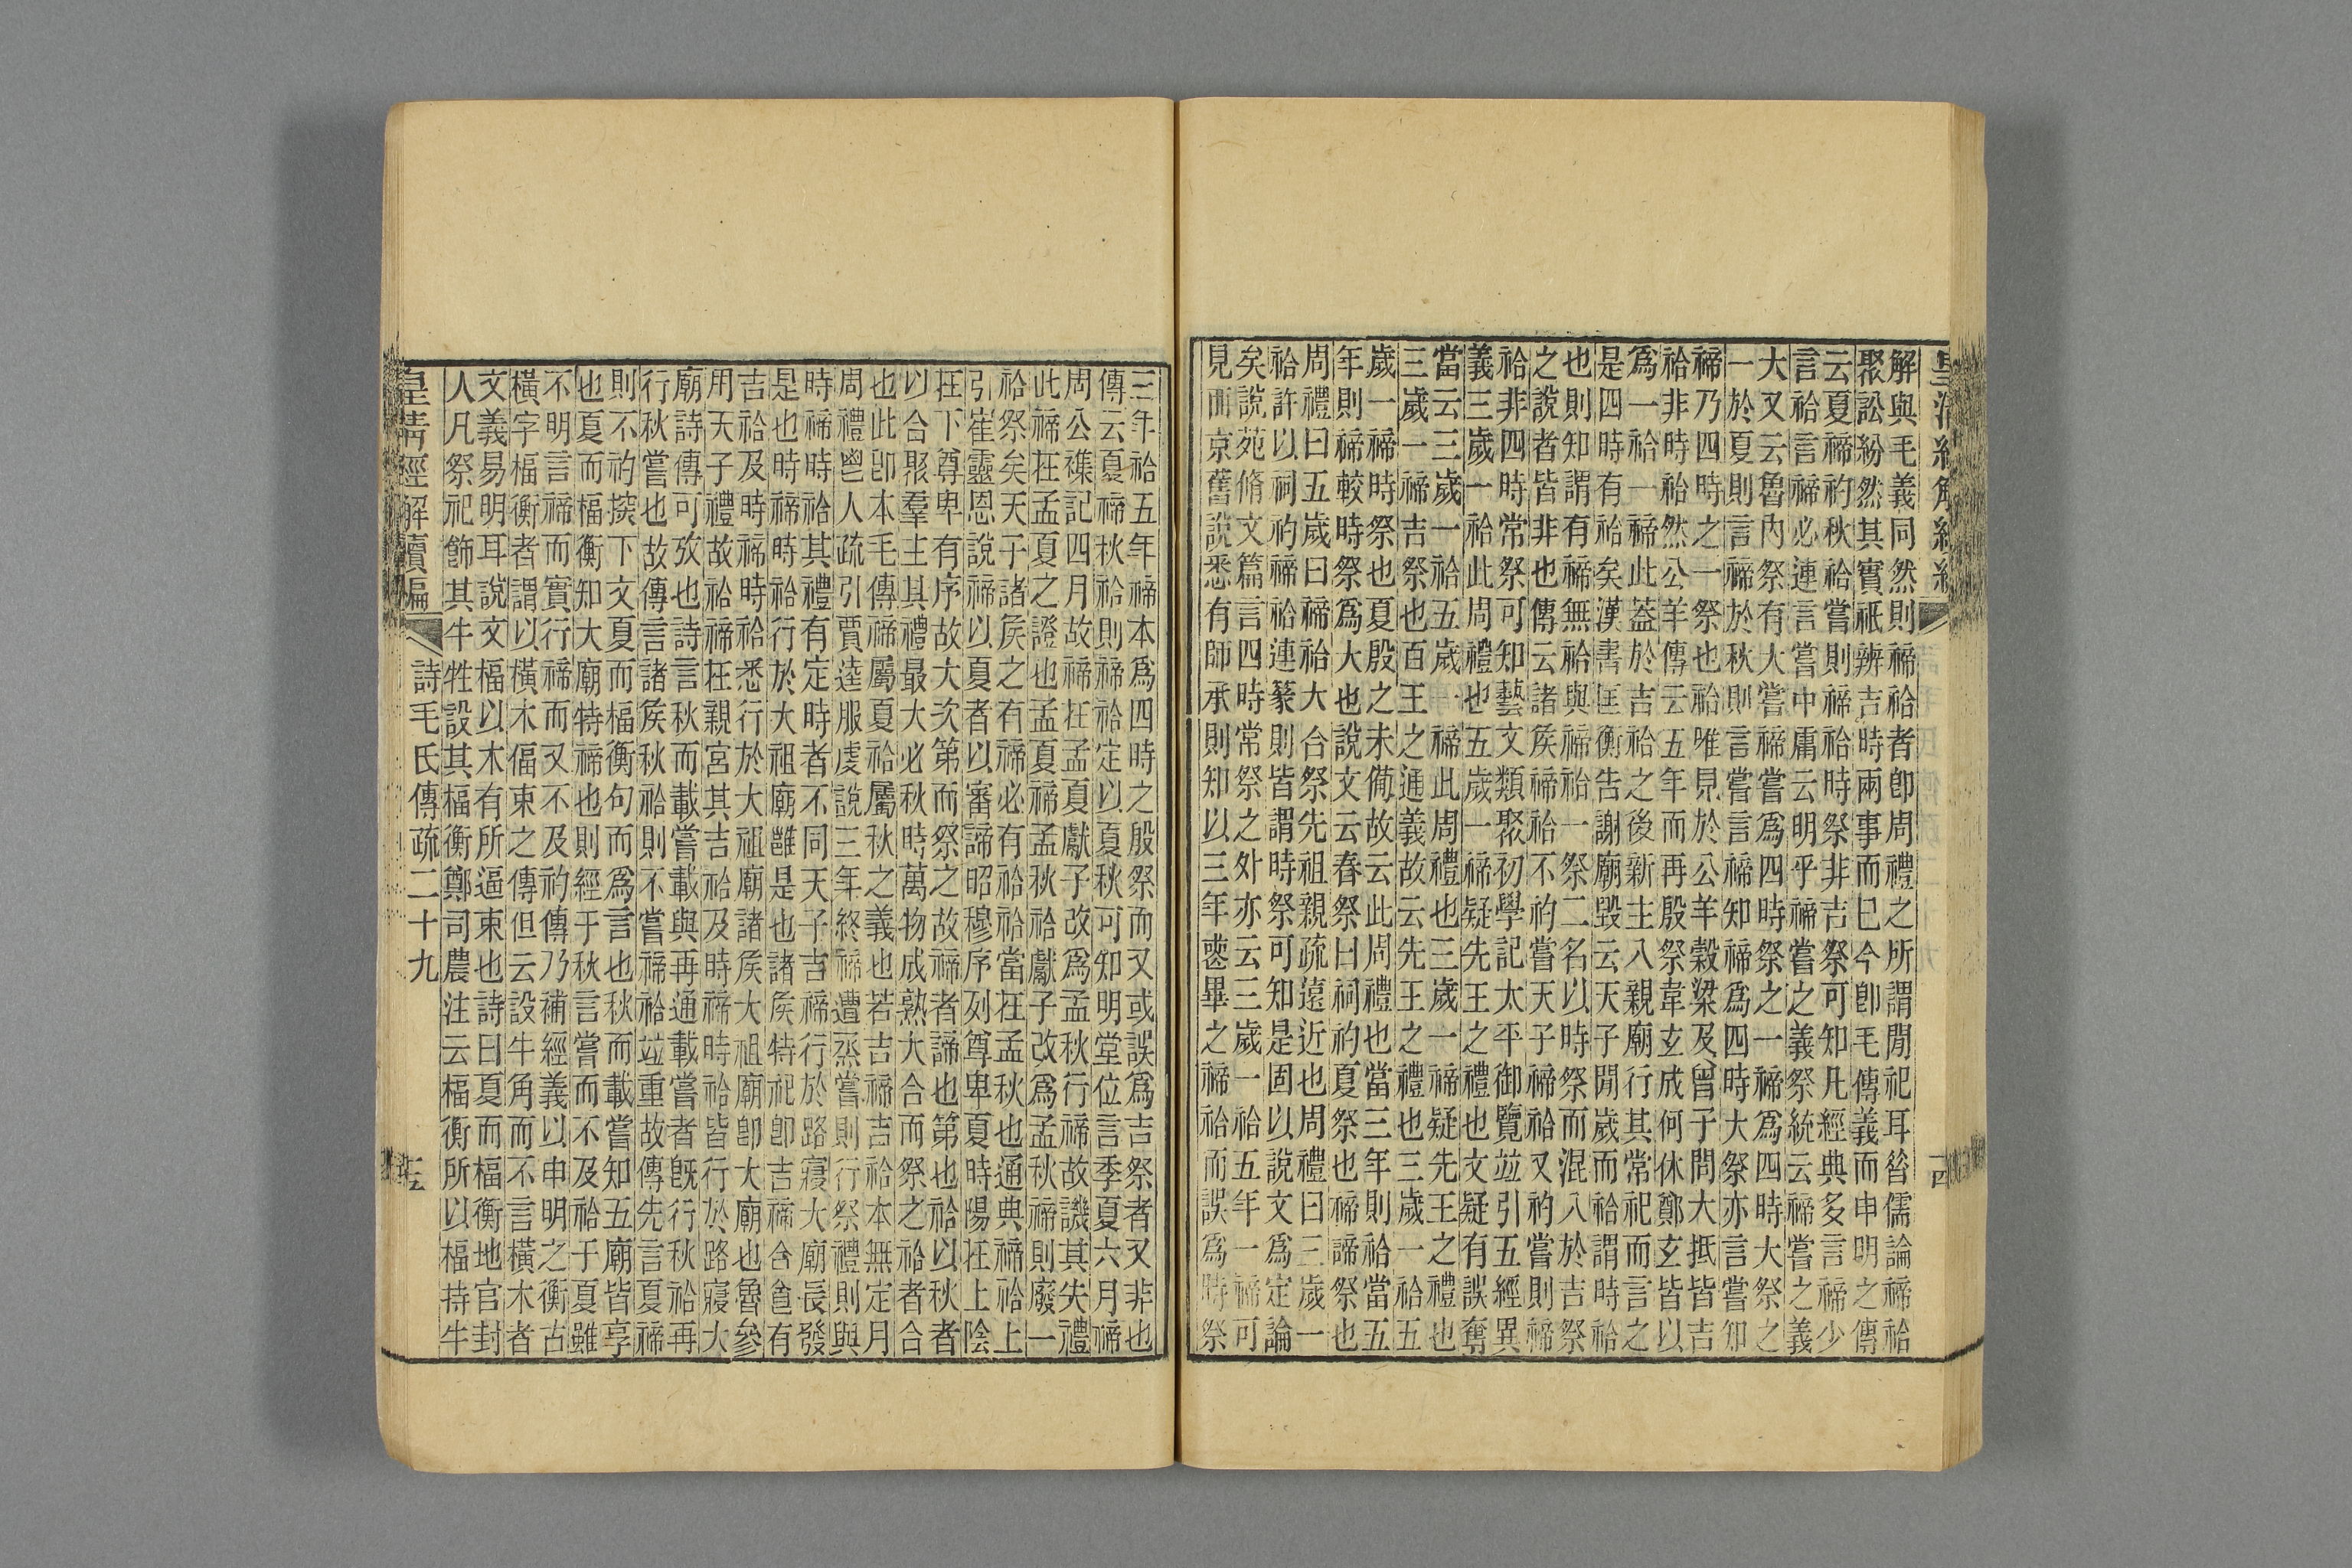 解與毛義同然則禘祫者卽周禮之所謂閒祀耳咎儒論禘祫
聚訟紛然其實祇辨吉時兩事而巳今卽毛傳義而申明之傳
云夏禘礿秋祫嘗則禘祫時祭非吉祭可知凡經典多言禘少
言祫言禘必連言嘗中庸云明乎禘嘗之義祭統云禘嘗之義
大又云魯內祭有大嘗禘嘗爲四時祭之一禘爲四時大祭之
一於夏則言禘於秋則言嘗言禘知禘爲四時大祭亦言嘗知
禘乃四時之一祭也祫唯見於公羊穀梁及曾子問大抵皆吉
祫非時祫然公羊傳云五年而再殷祭韋玄成何休鄭玄皆以
爲一祫一禘此葢於吉祫之後新主入親廟行其常祀而言之
是四時有祫矣漢書匡衡告謝廟毀云天子閒歲而祫謂時祫
也則知謂有禘無祫與禘祫一祭二名以時祭而混入於吉祭
之說者皆非也傳云諸矦禘祫不礿嘗天子禘祫又礿嘗則禘
祫非四時常祭可知藝文類聚初學記太平御覽竝引五經異
義三歲一祫此周禮也五歲一禘疑先王之禮也文疑有誤奪
當云三歲一祫五歲一禘此周禮也三歲一禘疑先王之禮也
三歲一禘吉祭也百王之通義故云先王之禮也三歲一祫五
歲一禘時祭也夏殷之未僃故云此周禮也當三年則祫當五
年則禘較時祭爲大也說文云春祭曰祠礿夏祭也禘諦祭也
周禮曰五歲曰禘祫大合祭先祖親疏遠近也周禮曰三歲一
祫許以祠礿禘祫連篆則皆謂時祭可知是固以說文爲定論
矣說苑脩文篇言四時常祭之外亦云三歲一祫五年一禘可
見而京舊說悉有師承則知以三年喪畢之禘祫而誤爲時祭
三年祫五年禘本爲四時之殷祭而又或誤爲吉祭者又非也
傳云夏禘秋祫則禘祫定以夏秋可知明堂位言季夏六月禘
周公襍記四月故禘在孟夏獻子改爲孟秋行禘故譏其失禮
此禘在孟夏之證也孟夏禘孟秋祫獻子改爲孟秋禘則廢一
祫祭矣天子諸矦之有禘必有祫祫當在孟秋也通典禘祫上
引崔靈恩說禘以夏者以審諦昭穆序列尊卑夏時陽在上陰
在下尊卑有序故大次第而祭之故禘者諦也第也祫以秋者
以合聚羣主其禮最大必秋時萬物成熟大合而祭之祫者合
也此卽本毛傳禘屬夏祫屬秋之義也若吉禘吉祫本無定月
周禮鬯人疏引賈逵服虔說三年終禘遭烝嘗則行祭禮則與
時禘時祫其禮有定時者不同天子吉禘行於路寢大廟長發
是也時禘時祫行於大祖廟雝是也諸矦特祀卽吉禘含酓有
吉祫及時禘時祫悉行於大祖廟諸矦大祖廟卽大廟也魯參
用天子禮故祫禘在親宮其吉祫及時禘時祫皆行於路寢大
廟詩傳可攷也詩言秋而載嘗載與再通載嘗者旣行秋祫再
行秋嘗也故傳言諸矦秋祫則不嘗禘祫竝重故傳先言夏禘
則不礿揆下文夏而楅衡句而爲言也秋而載嘗知五廟皆享
也夏而楅衡知大廟特禘也則經于秋言嘗而不及祫于夏雖
不明言禘而實行禘而又不及礿傳乃補經義以申明之衡古
橫字楅衡者謂以橫木偪束之傳但云設牛角而不言橫木者
文義易明耳說文楅以木有所逼束也詩曰夏而楅衡地官封
人凡祭祀飾其牛牲設其楅衡鄭司農注云楅衡所以楅持牛
皇淸經解續編 詩毛氏傳疏二十九